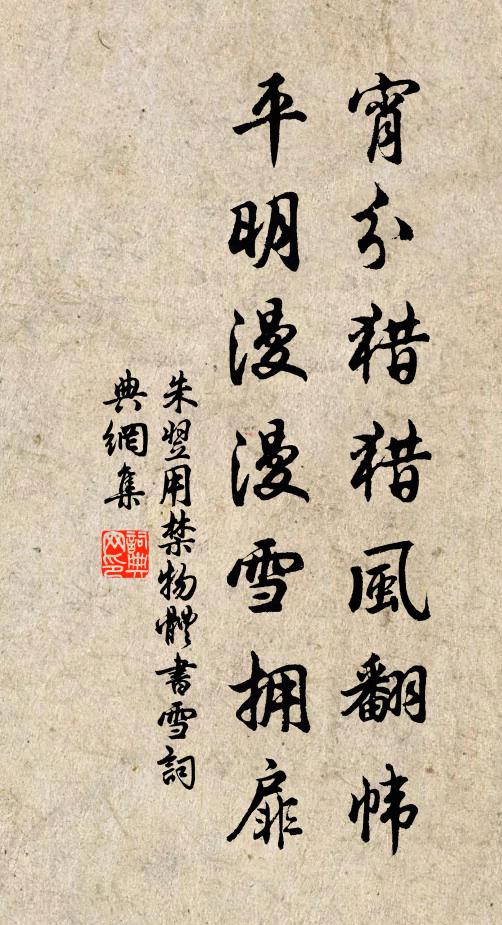 宵分猎猎風翻帏
平明漫漫雪拥扉
朱翌用禁物體書雪詞
典網集
詞典网印